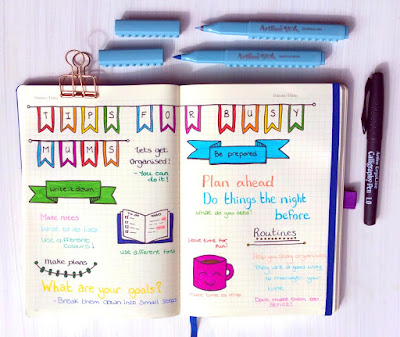 TIPS FOR BUSY
MUMS
Lets get
Organised!
- You can
do it!
Write it down
Make notes
Write to do lists
Use different
Colours!
Use different fonts
Make plans
What are your goals?
- Break them down into small steps
Be prepared
Plan ahead
Do things the night
before
What do you need?
Leave time for
fun!
Make time to stop
Routines
Help you stay organised
They are a good way
to manage your
time
Don't make them too
Calligraphy Pen 1.0